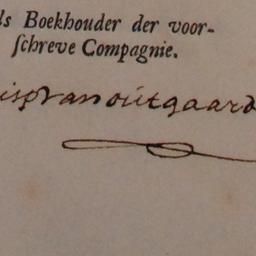 ls Boekhouder der voor-
ſchreve Compagnie.
Van outgaard